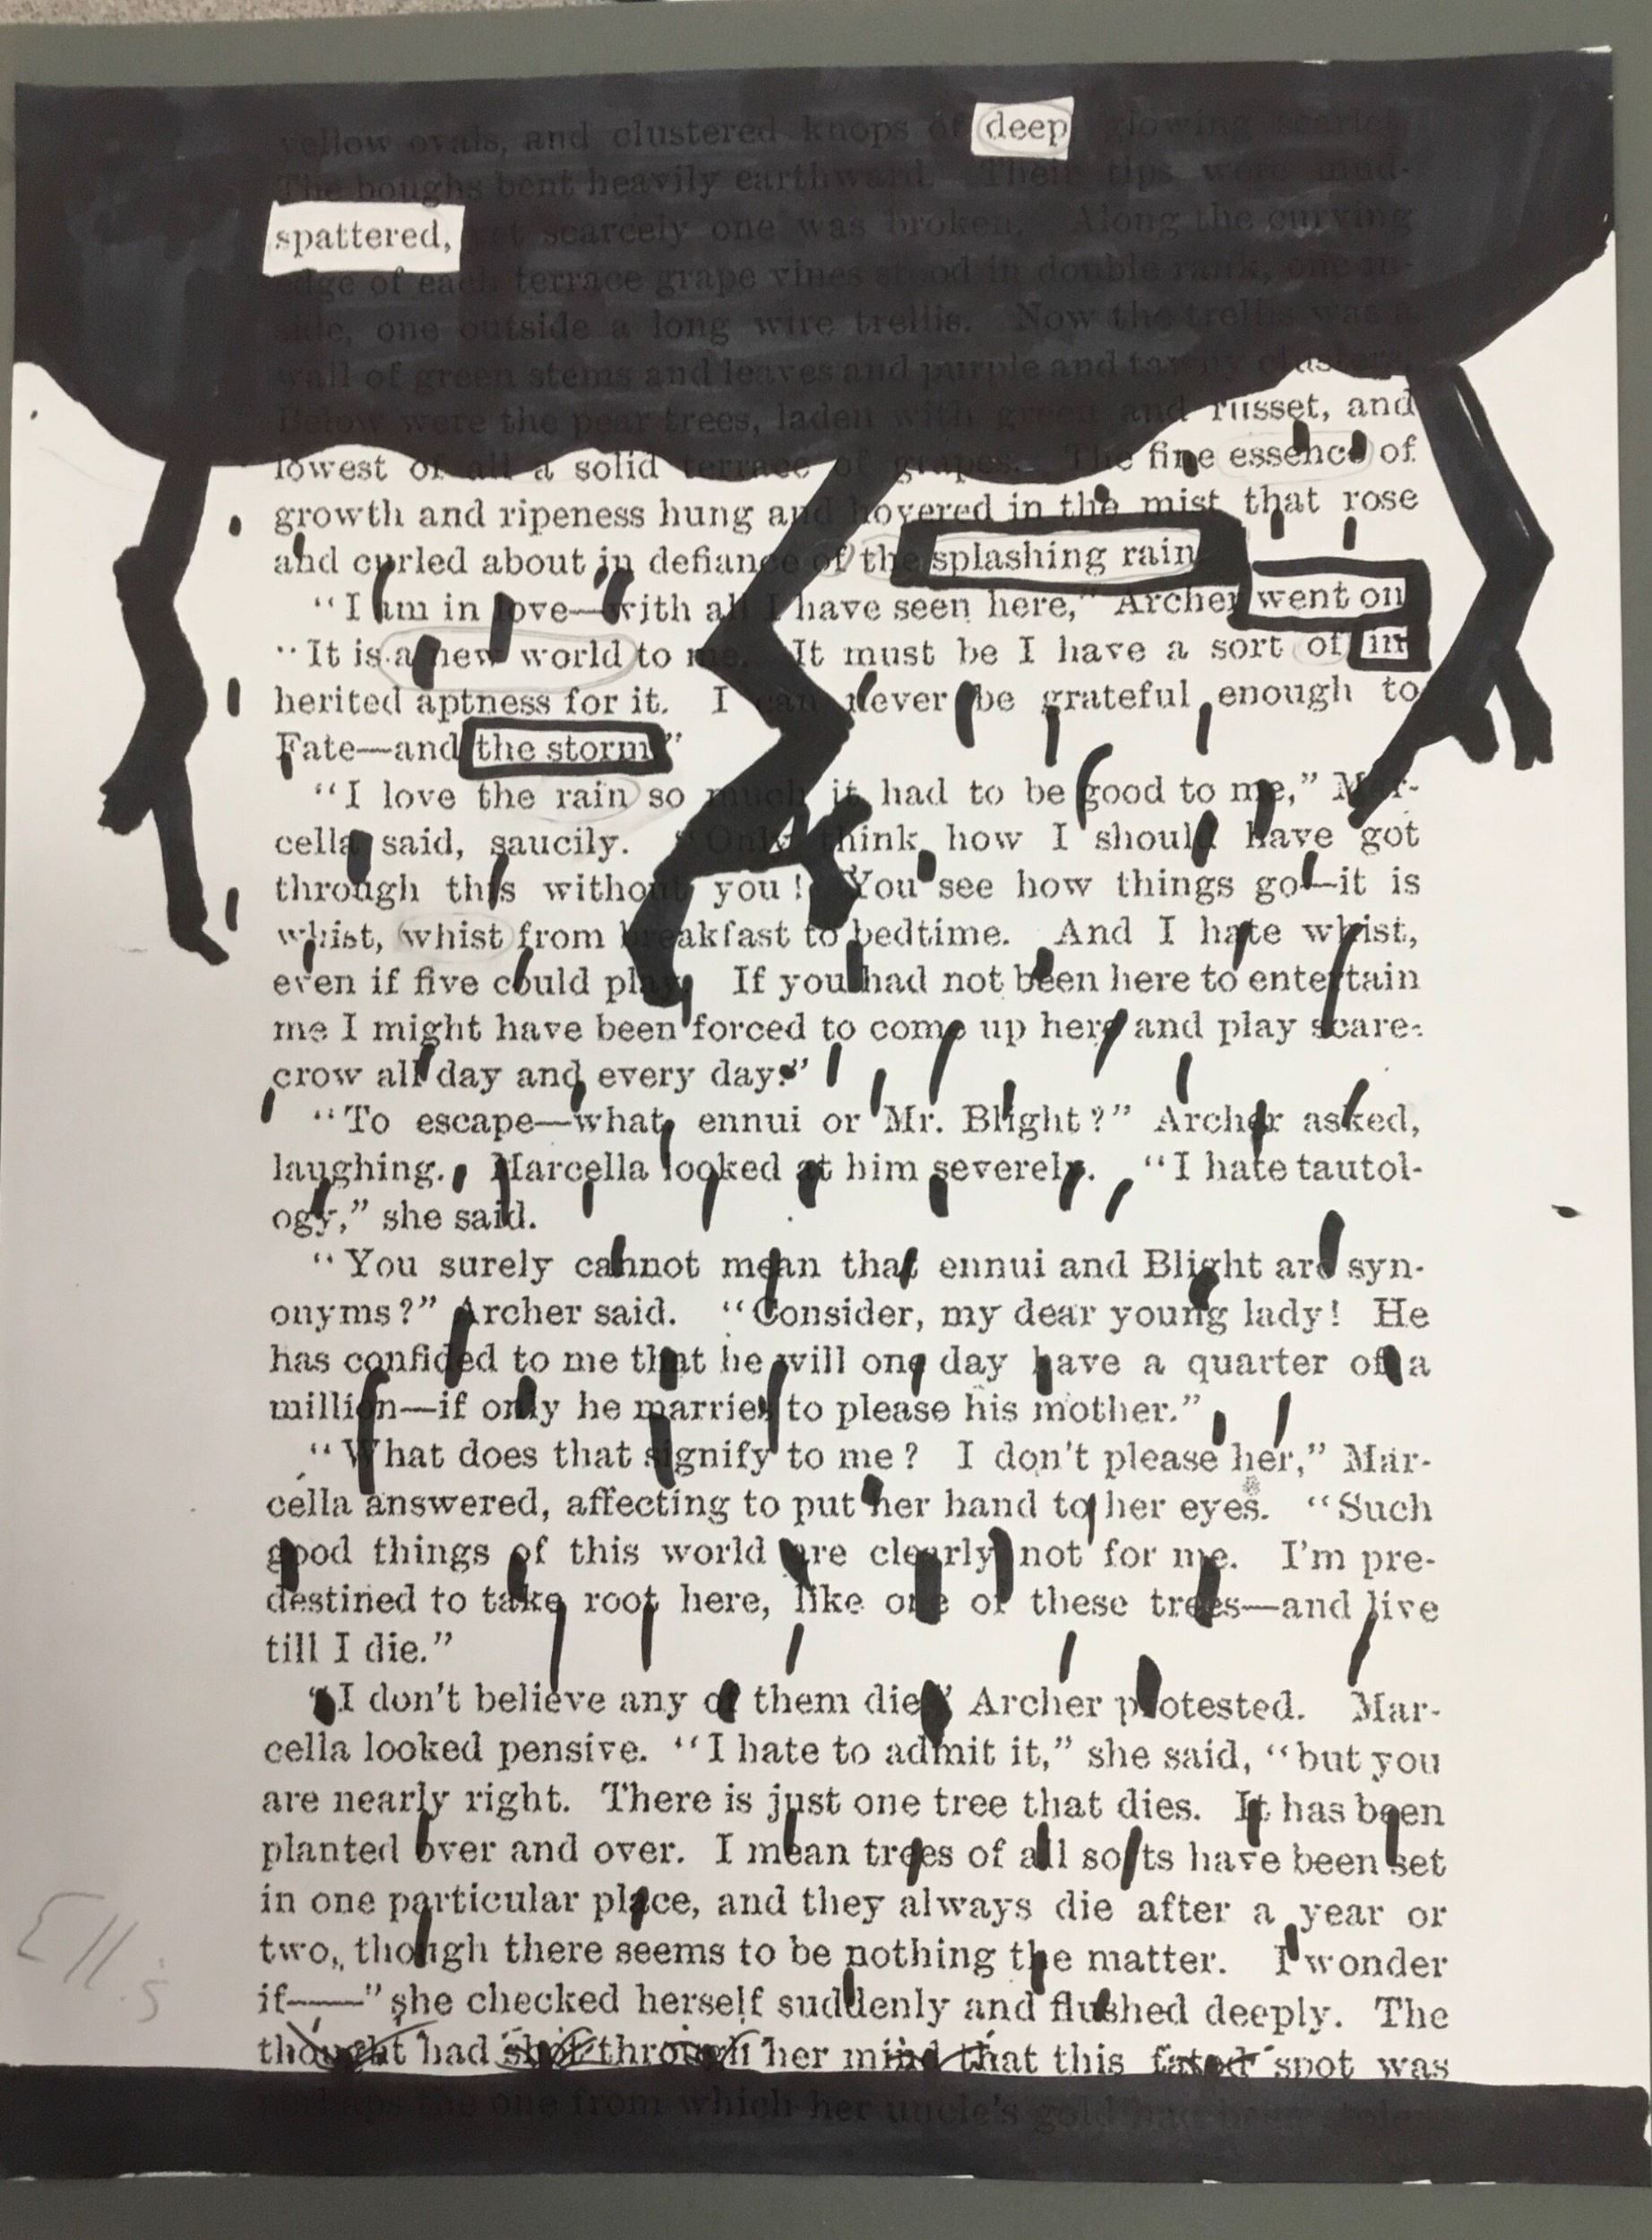 yellow ovals, and clustered knops of deep glowing scarlet.
The boughs bent heavily earthward. Their tips were mud-
spattered, yet scarcely one was broken. Along the curving
edge of each terrace grape vines stood in double rank, one in-
side, one outside a long wire trellis. Now the trellis was a
wall of green stems and leaves and purple and tawny clusters.
Below were the pear trees, laden with green and russet, and
lowest of all a solid terrace of grapes. The fine essence of
growth and ripeness hung and hovered in the mist that rose
and curled about in defiance of the splashing rain
"I am in love—with all I have seen here," Archer went on
"It is a new world to me. It must be I have a sort of in
herited aptness for it. I can never be grateful enough to
Fate—and the storm"
"I love the rain so much it had to be good to me," Mar-
cella said, saucily. "Only think how I should have got
through this without you! You see how things go—it is
whist, whist from breakfast to bedtime. And I hate whist,
even if five could play. If you had not been here to entertain
me I might have been forced to come up here and play scare-
crow all day and every day."
"To escape—what, ennui or Mr. Blight?" Archer asked,
laughing. Marcella looked at him severely. "I hate tautol-
ogy," she said.
"You surely cannot mean that ennui and Blight are syn-
onyms?" Archer said. "Consider, my dear young lady! He
has confided to me that he will one day have a quarter of a
million—if only he marries to please his mother."
"What does that signify to me? I don't please her," Mar-
cella answered, affecting to put her hand to her eyes. "Such
good things of this world are clearly not for me. I'm pre-
destined to take root here, like one of these trees—and live
till I die."
"I don't believe any of them die," Archer protested. Mar-
cella looked pensive. "I hate to admit it," she said, "but you
are nearly right. There is just one tree that dies. It has been
planted over and over. I mean trees of all sorts have been set
in one particular place, and they always die after a year or
two, though there seems to be nothing the matter. I wonder
if——" she checked herself suddenly and flushed deeply. The
thought had shot through her mind that this fated spot was
perhaps the one from which her uncle's gold had been stolen
Ellis